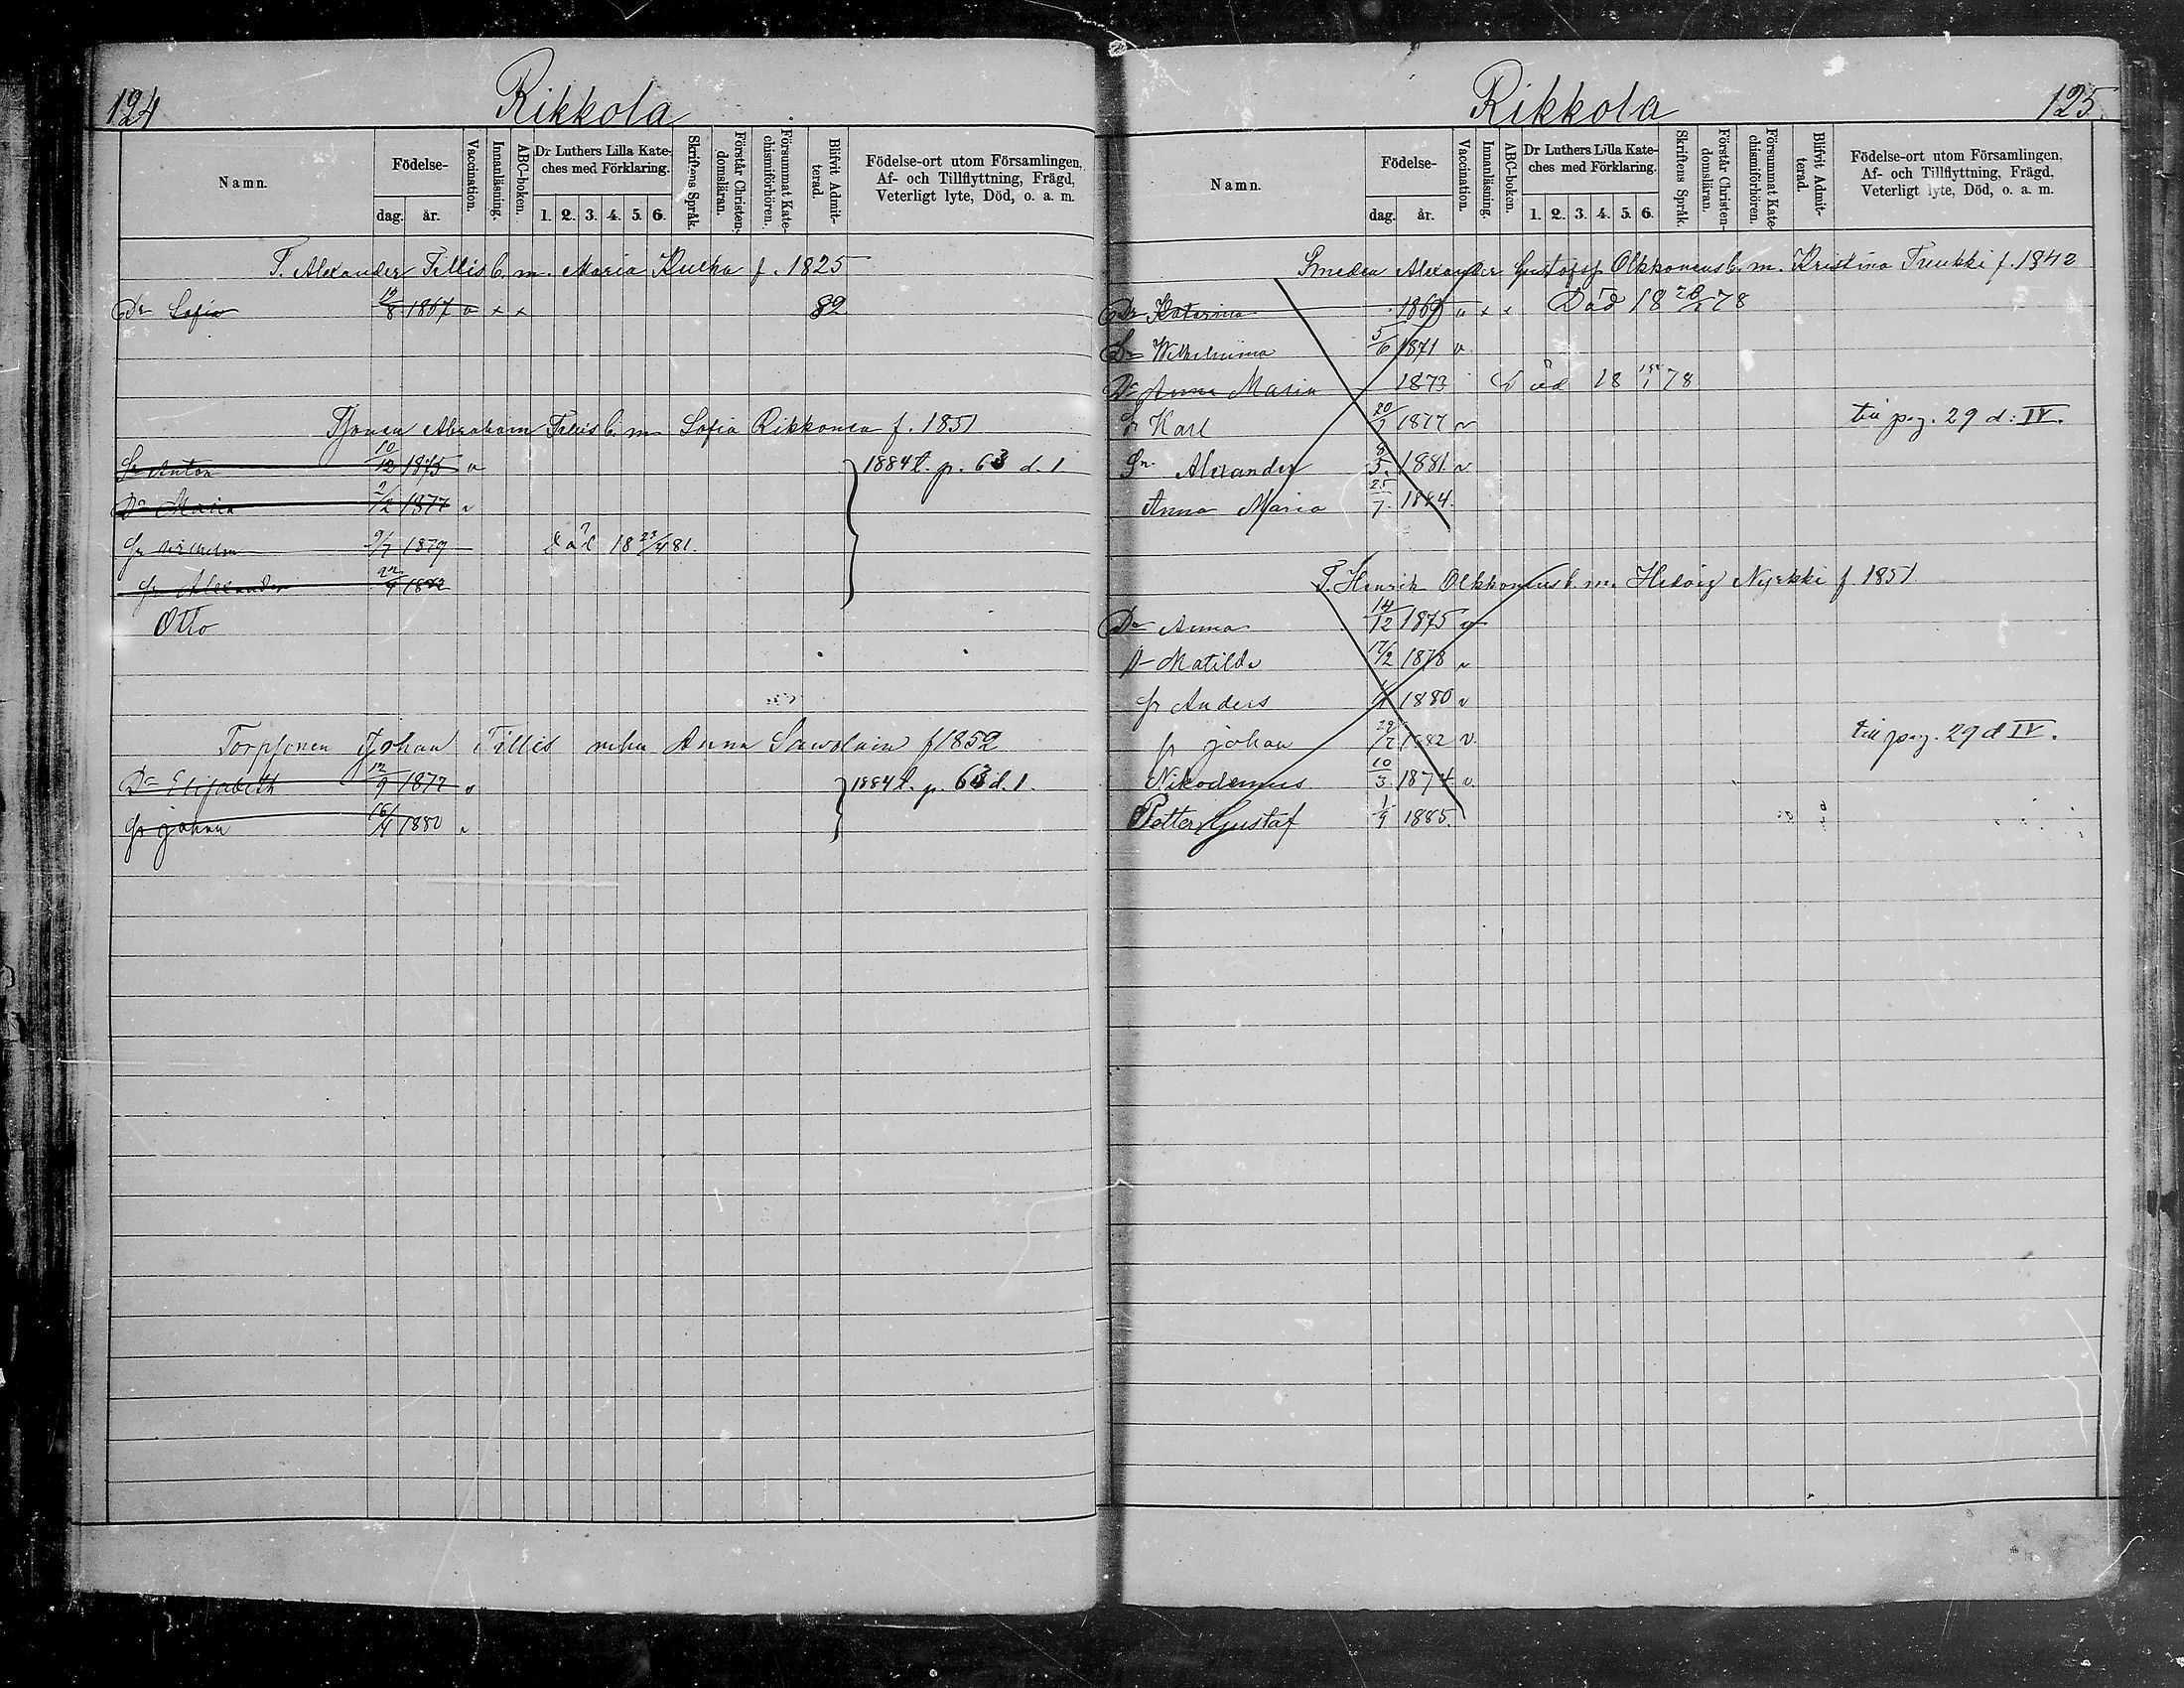 124
Rikkola
Namn.
Födelse-
dag. år.
Vaccination.
Innanläsning.
ABC-boken.
Dr Luthers Lilla Kate-
ches med Förklaring.
1. 2. 3. 4. 5. 6.
Skriftens Språk.
Förstår Christen-
domsläran.
Försummat Kate-
chismiförhören.
Blifvit Admit-
terad.
Födelse-ort utom Församlingen,
Af- och Tillflyttning, Frägd,
Veterligt lyte, Död, o. a. m.
T. Alexander Tillis b. m. Maria Kukka f. 1825
Dr Sofia 12/8 1867 v x x 82
Tjonen Abraham Tillis b. m. Sofia Rikkonen f. 1851
Sr Anton 10/12 1875 v 1884 t. p. 63 d. 1
Dr Maria 2/2 1877 v
Sr Wilhelm 9/7 1879 död 18 23/4 81.
Sr Alexander 22/4 1882
Otto
Torpsonen Johan Tillis m hu Anna Sawolain f 1852
Dr Elisabeth 12/9 1877 v 1884 t. p. 63 d. 1.
Sr Johan 16/4 1880 v
Rikkola
125.
Namn.
Födelse-
dag. år.
Vaccination.
Innanläsning.
ABC-boken.
Dr Luthers Lilla Kate-
ches med Förklaring.
1. 2. 3. 4. 5. 6.
Skriftens Språk.
Förstår Christen-
domsläran.
Försummat Kate-
chismiförhören.
Blifvit Admit-
terad.
Födelse-ort utom Församlingen,
Af- och Tillflyttning, Frägd,
Veterligt lyte, Död, o. a. m.
Smeden Alexander Gustafss Olkkonens b. m. Kristina Treukki f. 1842
Dr Katarina 1869 v x x Död 18 28/1 78
Dr Wilhelmina 5/6 1871 v
Dr Anna Maria 1873 Död 18 78
Sr Karl 1877 v till pag. 29 d: IV.
Sn Alexander 8/5. 1881. v
Anna Maria 25/7. 1884.
T. Henrik Olkkonens b. m. Hedvig Nyrkki f 1851
Dr Anna 14/12 1875 v
Dr Matilda 17/2 1878 v
Sr Anders 1880 v
Sr Johan 1882 v. till pag. 29 d IV.
Nikodemus 10/3 1874 v.
Petter Gustaf 1/9 1885.